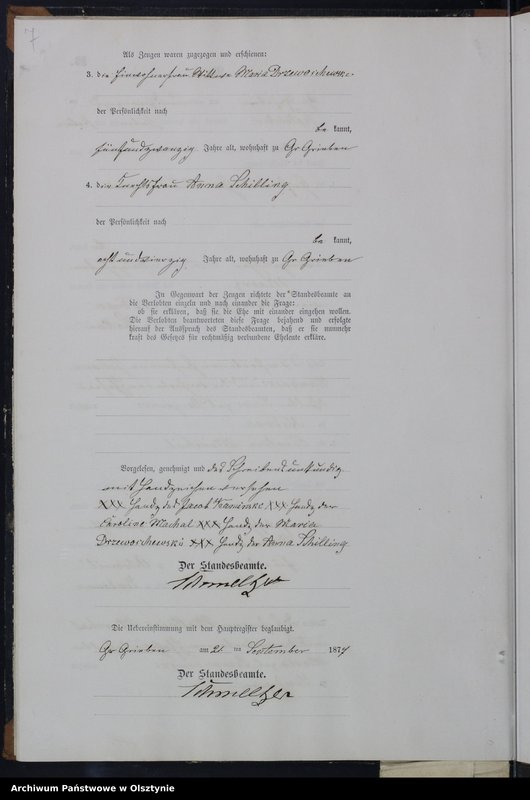 7.
Als Zeugen waren zugezogen und erschienen:
3. die Einwohnerfrau Wittwe Maria Drzewoschewski
der Persönlichkeit nach
be kannt,
fünfundzwanzig Jahre alt, wohnhaft zu Gr Grieben
4. die Knechtsfrau Anna Schilling
der Persönlichkeit nach
be kannt,
achtundvierzig Jahre alt, wohnhaft zu Gr Grieben
In Gegenwart der Zeugen richtete der Standesbeamte an
die Verlobten einzeln und nach einander die Frage:
ob sie erklären, daß sie die Ehe mit einander eingehen wollen.
Die Verlobten beantworteten diese Frage bejahend und erfolgte
hierauf der Ausspruch des Standesbeamten, daß er sie nunmehr
kraft des Gesetzes für rechtmäßig verbundene Eheleute erkläre.
Vorgelesen, genehmigt und des Schreibens unkundig
mit Handzeichen versehen
XXX Handz des Jacob XXX Handz der
Caroline Machal XXX Handz der Maria
Drzewoschewski XXX Handz der Anna Schilling
Der Standesbeamte.
Schmeltzer
Die Uebereinstimmung mit dem Hauptregister beglaubigt.
Gr Grieben am 21 ten September 1877
Der Standesbeamte.
Schmeltzer
Archiwum Państwowe w Olsztynie